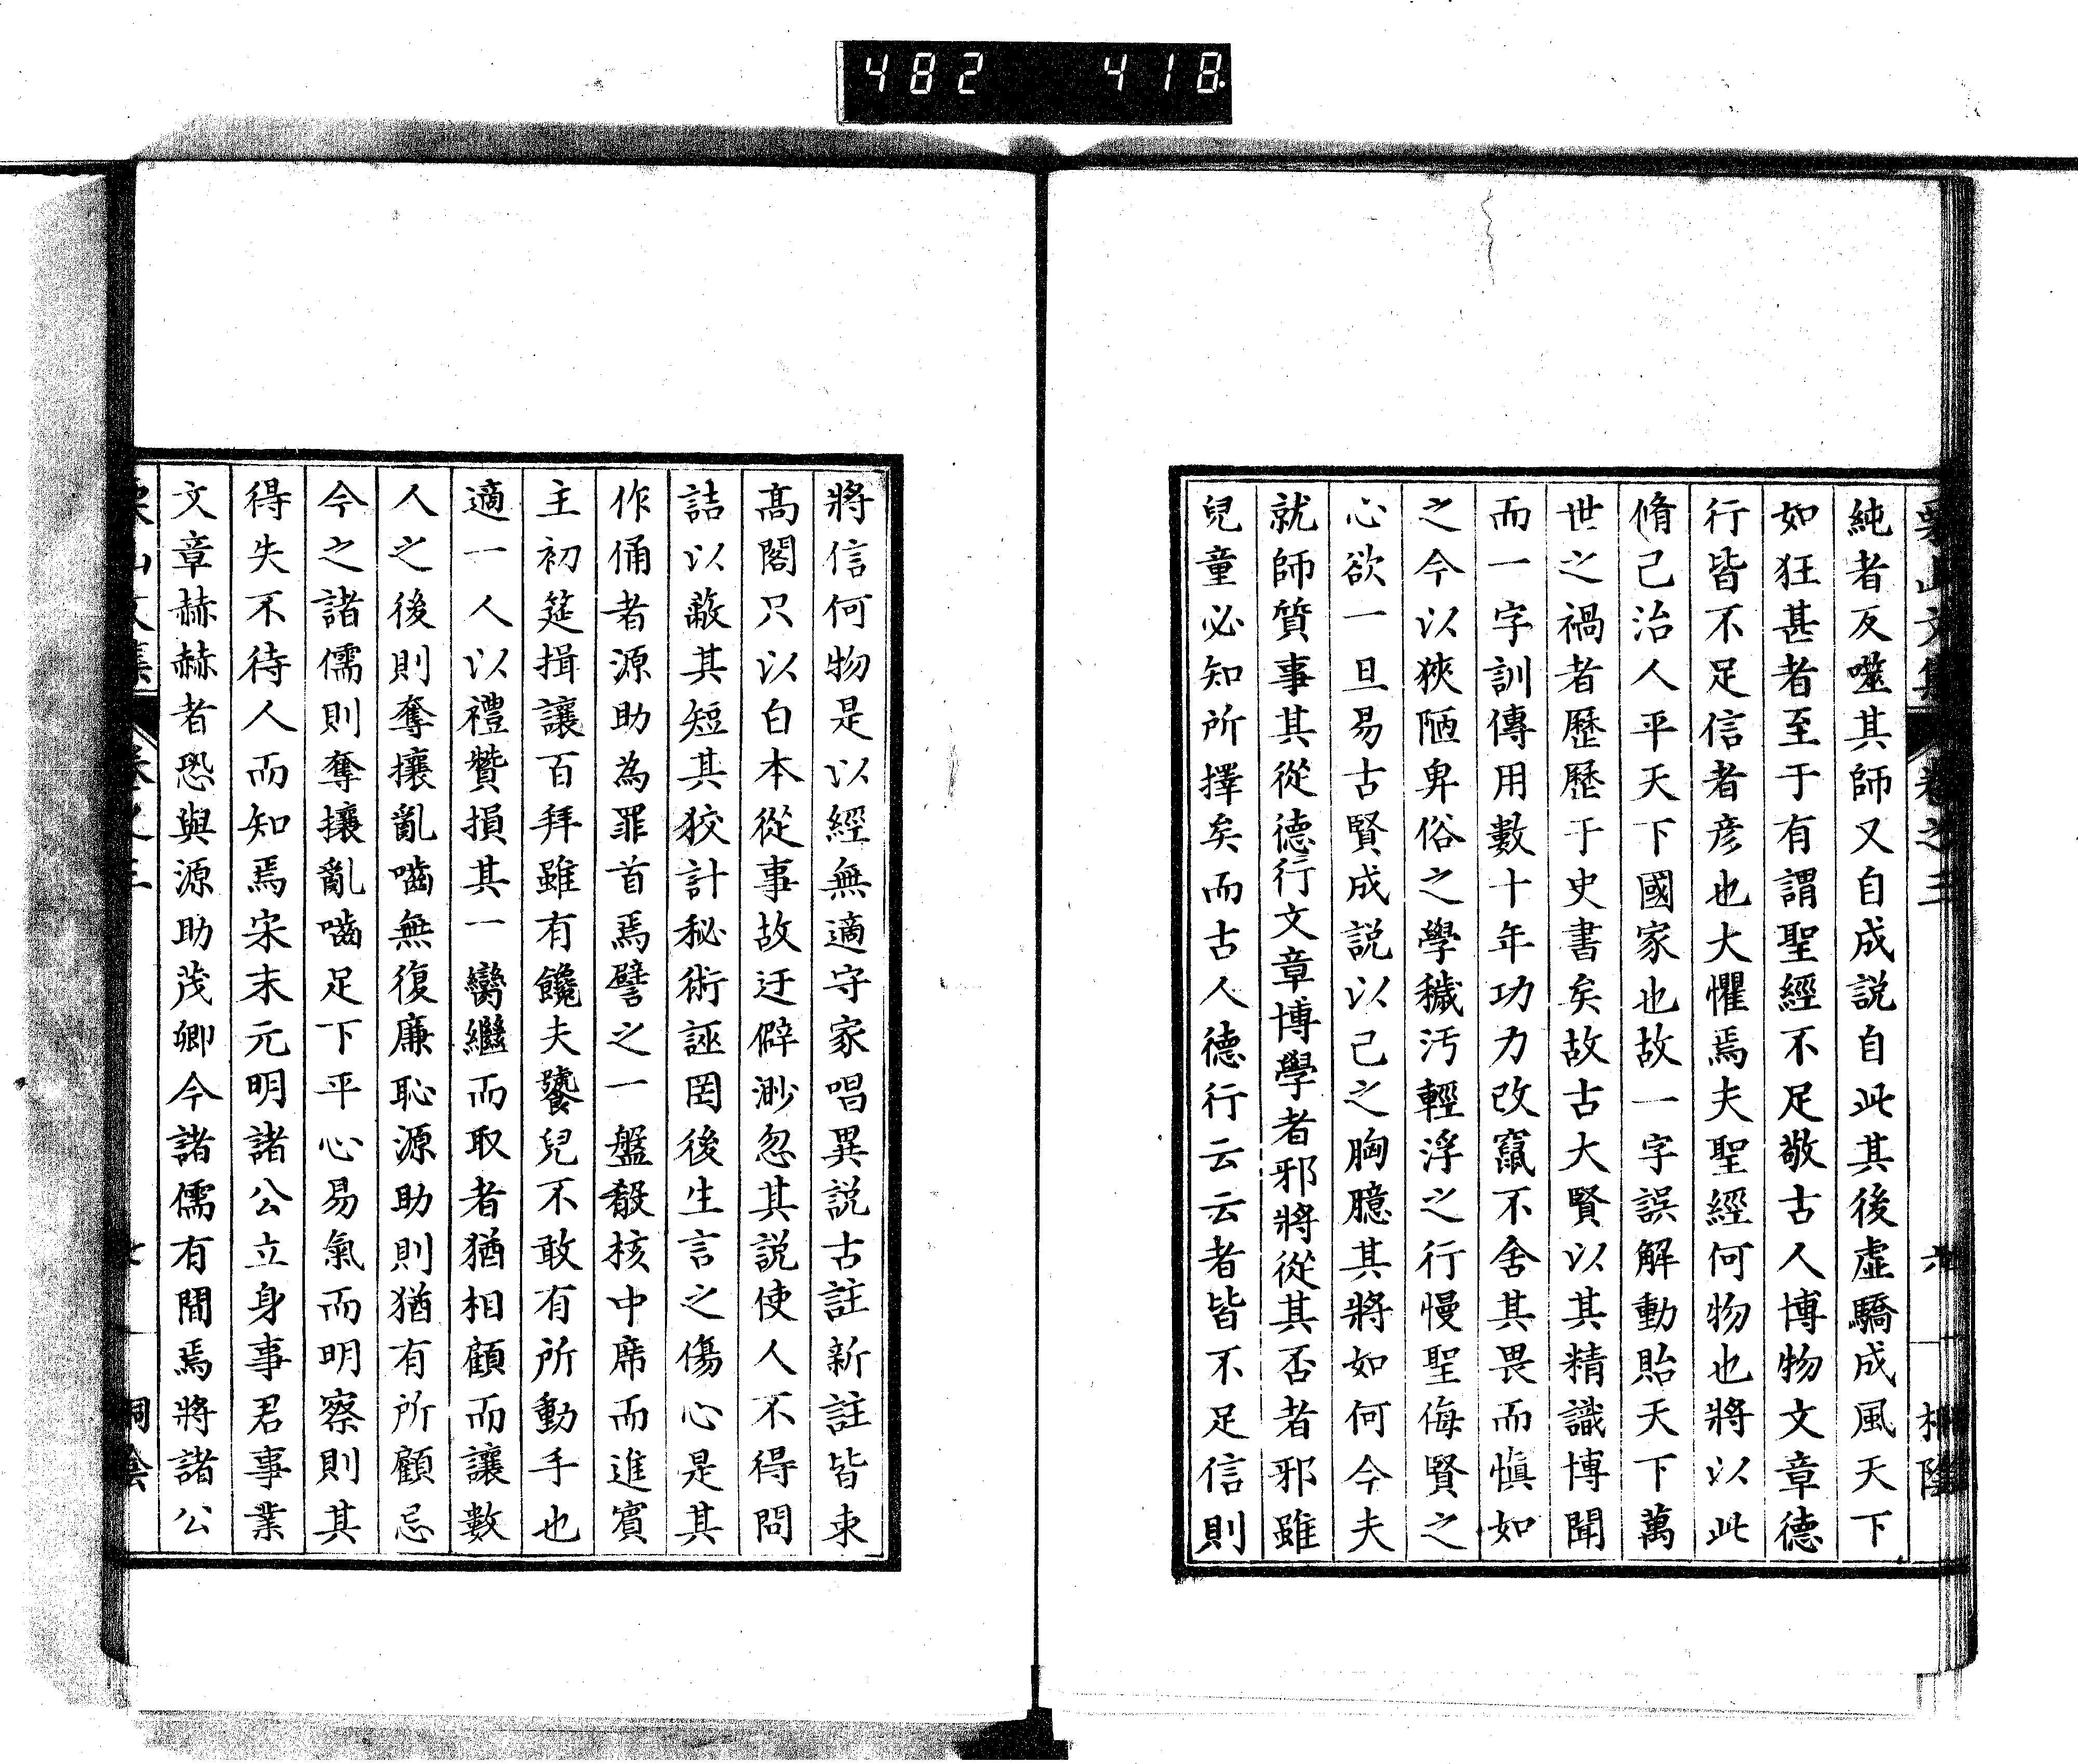 482 418
純者反噬其師又自成説自此其後虛驕成風天下
如狂甚者至于有謂聖經不足敬古人博物文章德
行皆不足信者彦也大懼焉夫聖經何物也將以此
脩己治人平天下國家也故一字誤解動貽天下萬
世之禍者歷歷于史書矣故古大賢以其精識博聞
而一字訓傳用數十年功力改竄不舍其畏而慎如
之今以狹陋卑俗之學穢汚輕浮之行慢聖侮賢之
心欲一旦易古賢成説以己之胸臆其將如何今夫
就師質事其從德行文章博學者邪將從其否者邪雖
兒童必知所擇矣而古人德行云云者皆不足信則
栗山文集 卷之三 六
將信何物是以經無適守家唱異説古註新註皆束
髙閣只以白本從事故迂僻渺忽其説使人不得問
詰以蔽其短其狡計秘術誣罔後生言之傷心是其
作俑者源助為罪首焉譬之一盤殽核中席而進賓
主初筵揖讓百拜雖有饞夫饕兒不敢有所動手也
適一人以禮贊損其一臠繼而取者猶相顧而讓數
人之後則奪攘亂嚙無復廉恥源助則猶有所顧忌
今之諸儒則奪攘亂嚙足下平心易氣而明察則其
得失不待人而知焉宋末元明諸公立身事君事業
文章赫赫者恐與源助茂卿今諸儒有間焉將諸公